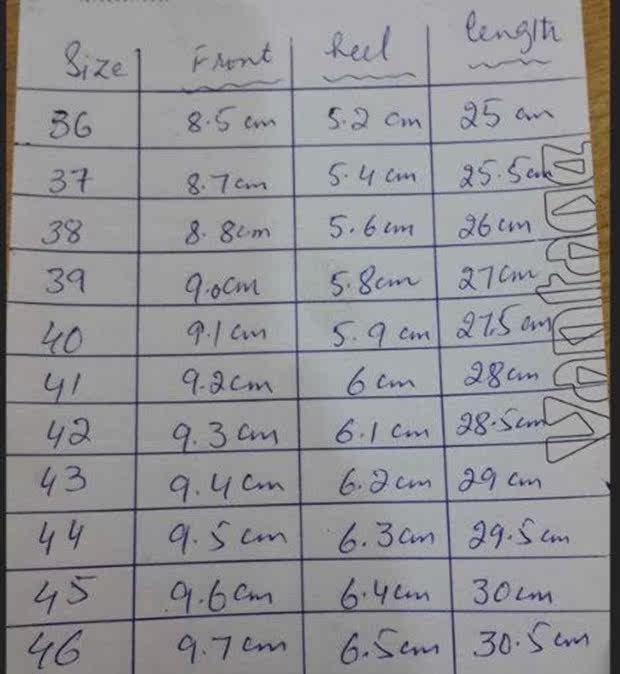 Size Front heel length
36 8.5 cm 5.2 cm 25 cm
37 8.7cm 5.4 cm 25.5cm
38 8.8cm 5.6cm 26cm
39 9.0cm 5.8cm 27cm
40 9.1 cm 5.9 cm 27.5 cm
41 9.2cm 6 cm 28cm
42 9.3 cm 6.1 cm 28.5cm
43 9.4 cm 6.2 cm 29 cm
44 9.5 cm 6.3cm 29.5cm
45 9.6cm 6.4cm 30cm
46 9.7 cm 6.5cm 30.5cm